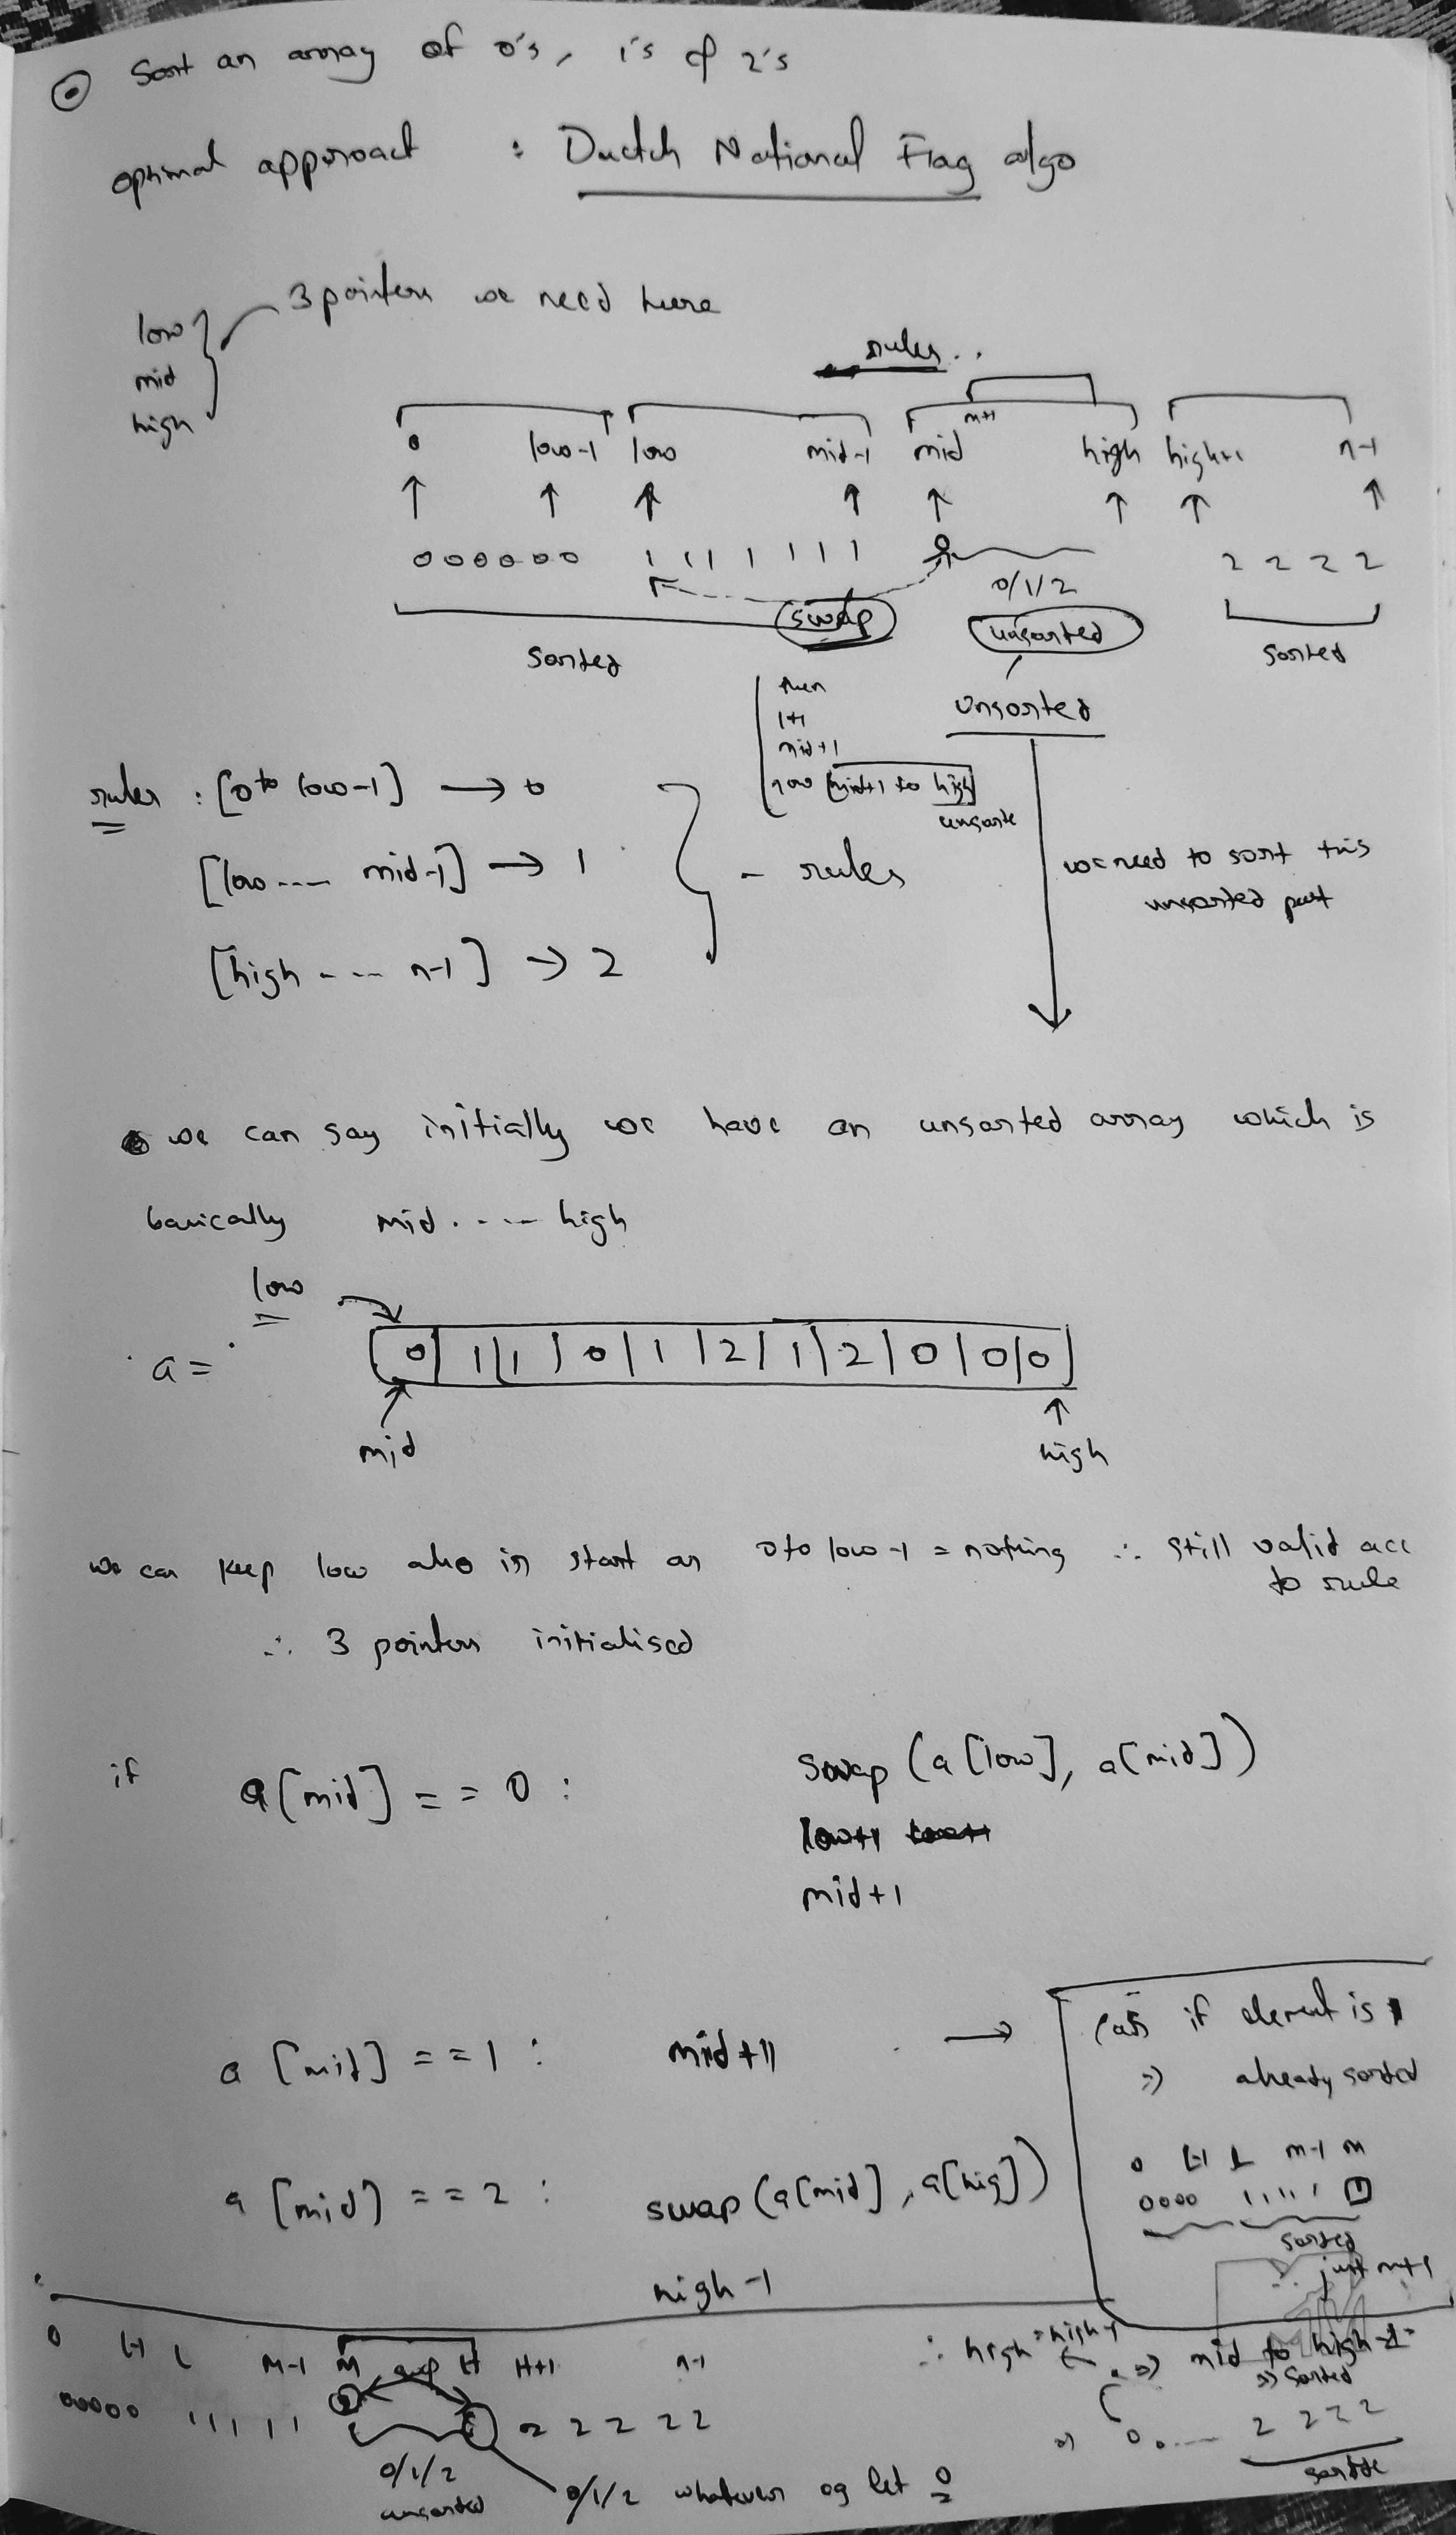 Sort an array of 0's, 1's & 2's
optimal approact : Ductch National Flag algo
3 pointers we need here
low
mid
high
rules..
m+1
0 low-1 low mid-1 mid high high+1 n-1
0 0 0 0 0 0 1 1 1 1 1 1 1 2 2 2 2
0/1/2
swap unsorted
sorted sorted
then unsorted
l+1
mid+1
now [mid+1 to high]
unsorte
rules : [0 to low-1] → 0
[low --- mid-1] → 1 - rules
we need to sort this
unsorted part
[high - -- n-1] → 2
we can say initially we have an unsorted array which is
basically mid . - -- high
low
a = 0 | 1 | 1 | 0 | 1 | 2 | 1 | 2 | 0 | 0 | 0
mid high
we can keep low also in start as 0 to low-1 = nothing ∴ still valid acc
to rule
∴ 3 pointers initialised
if a[mid] == 0 : swap (a[low], a[mid])
low+1
mid+1
a [mid] == 1 : mid+1 →
if element is 1
⇒ already sorted
0 L-1 L m-1 m
0000 1 1 1 1 1 1
sorted
∴ just m+1
a [mid] == 2 : swap (a[mid], a[hig])
high -1
0 L-1 L M-1 M swap H H+1 n-1
00000 1 1 1 1 1 2 2 2 2 2 2
0/1/2
unsorted
0/1/2 whatever eg let 0
∴ high = high-1 ⇒ mid to high-1
⇒ sorted
⇒ 0 0 .... 2 2 2 2
sorted